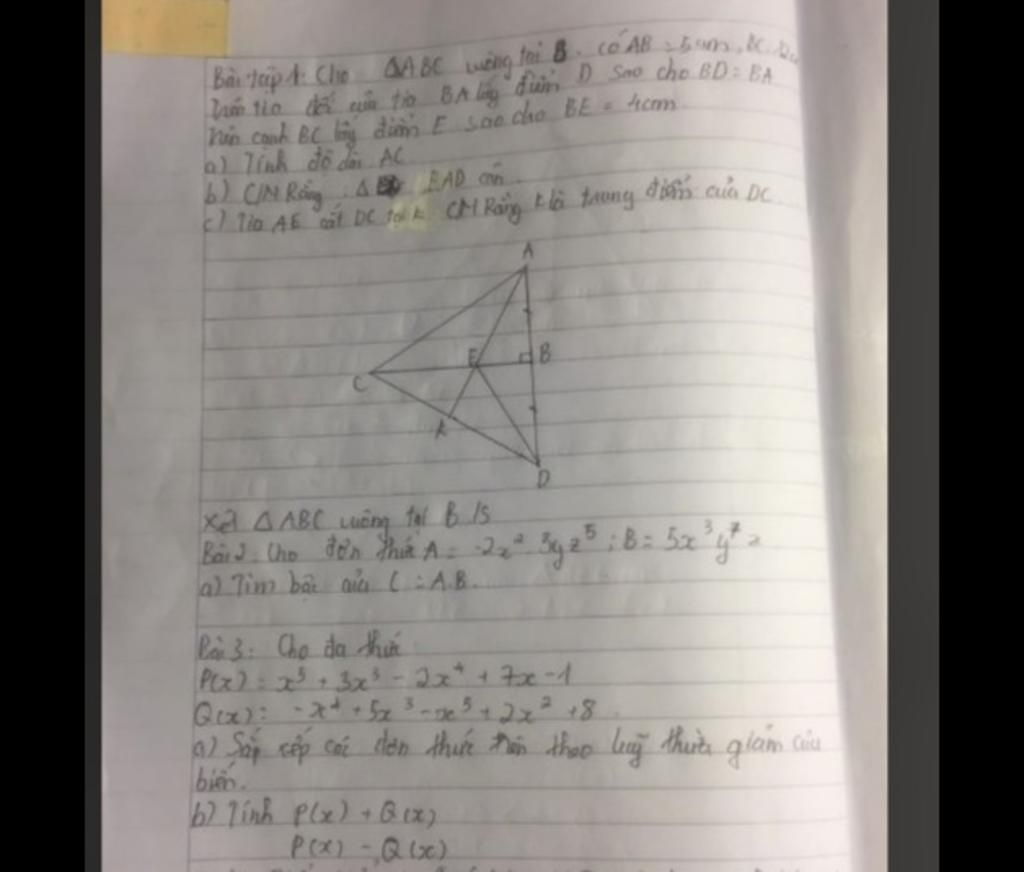 Bài tập 1: Cho ΔABC vuông tại B. có AB = 5cm, BC
Trên tia đối của tia BA lấy điểm D sao cho BD = BA
Trên cạnh BC lấy điểm E sao cho BE = 4cm
a) Tính độ dài AC
b) CM Rằng Δ EAD cân
c) Tia AE cắt DC tại K CM Rằng K là trung điểm của DC
A
E B
C
K
D
Xét ΔABC vuông tại B
Bài 2: Cho đơn thức A = -2x² 3yz⁵ ; B = 5x³y⁷z
a) Tìm bậc của C = A.B.
Bài 3: Cho đa thức
P(x) = x⁵ + 3x³ - 2x⁴ + 7x - 1
Q(x): -x⁴ + 5x³ - x⁵ + 2x² + 8
a) Sắp xếp các đơn thức trên theo luỹ thừa giảm của
biến.
b) Tính P(x) + Q(x)
P(x) - Q(x)